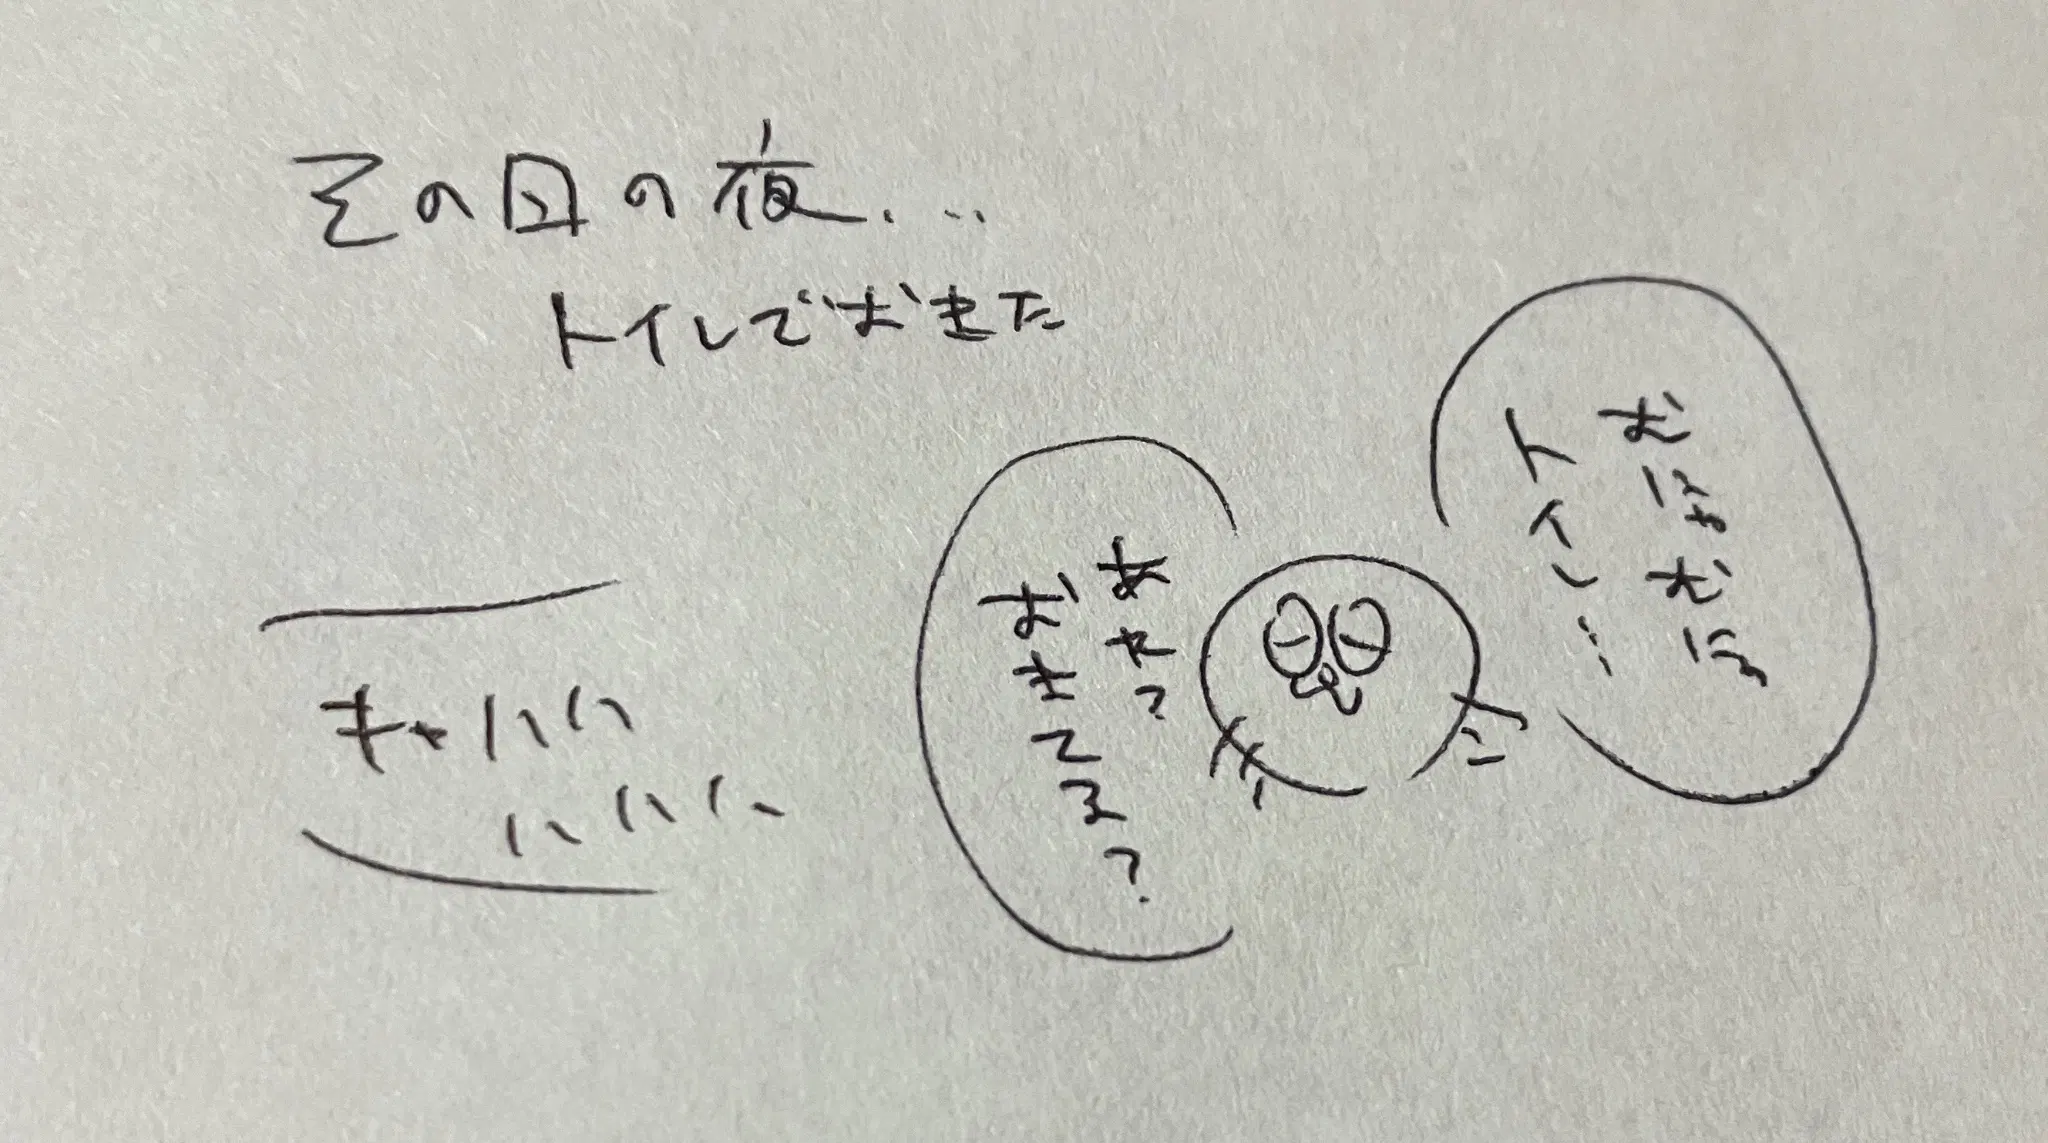 その日の夜...
トイレでおきた
むにゃむにゃ
トイレ...
あれ?
おきてる?
キャハハ
ハハハ